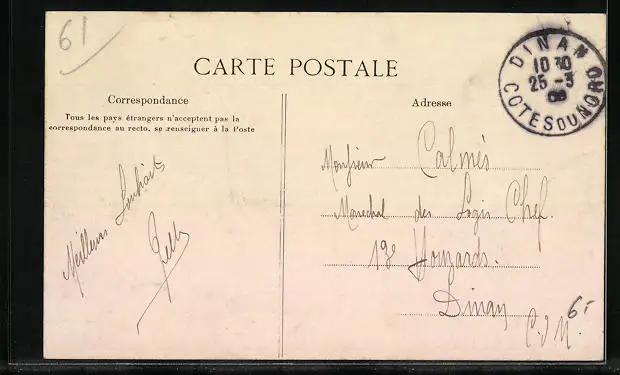 61
CARTE POSTALE
Correspondance
Tous les pays étrangers n'acceptent pas la
correspondance au recto, se renseigner à la Poste
Meilleurs Souhaits
Adresse
Monsieur Calmés
Marechal des Logis Chef.
13e Houzards.
Dinan
C. d N.
6-
DINAN
10 30
25 -3
COTES DU NORD